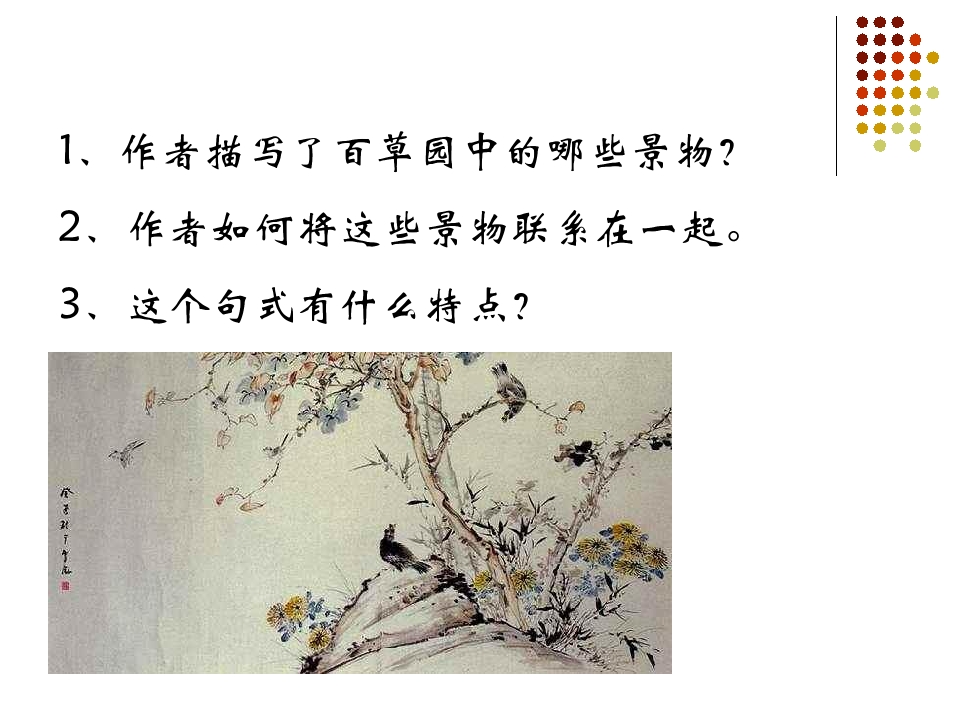 1、作者描写了百草园中的哪些景物？
2、作者如何将这些景物联系在一起。
3、这个句式有什么特点？